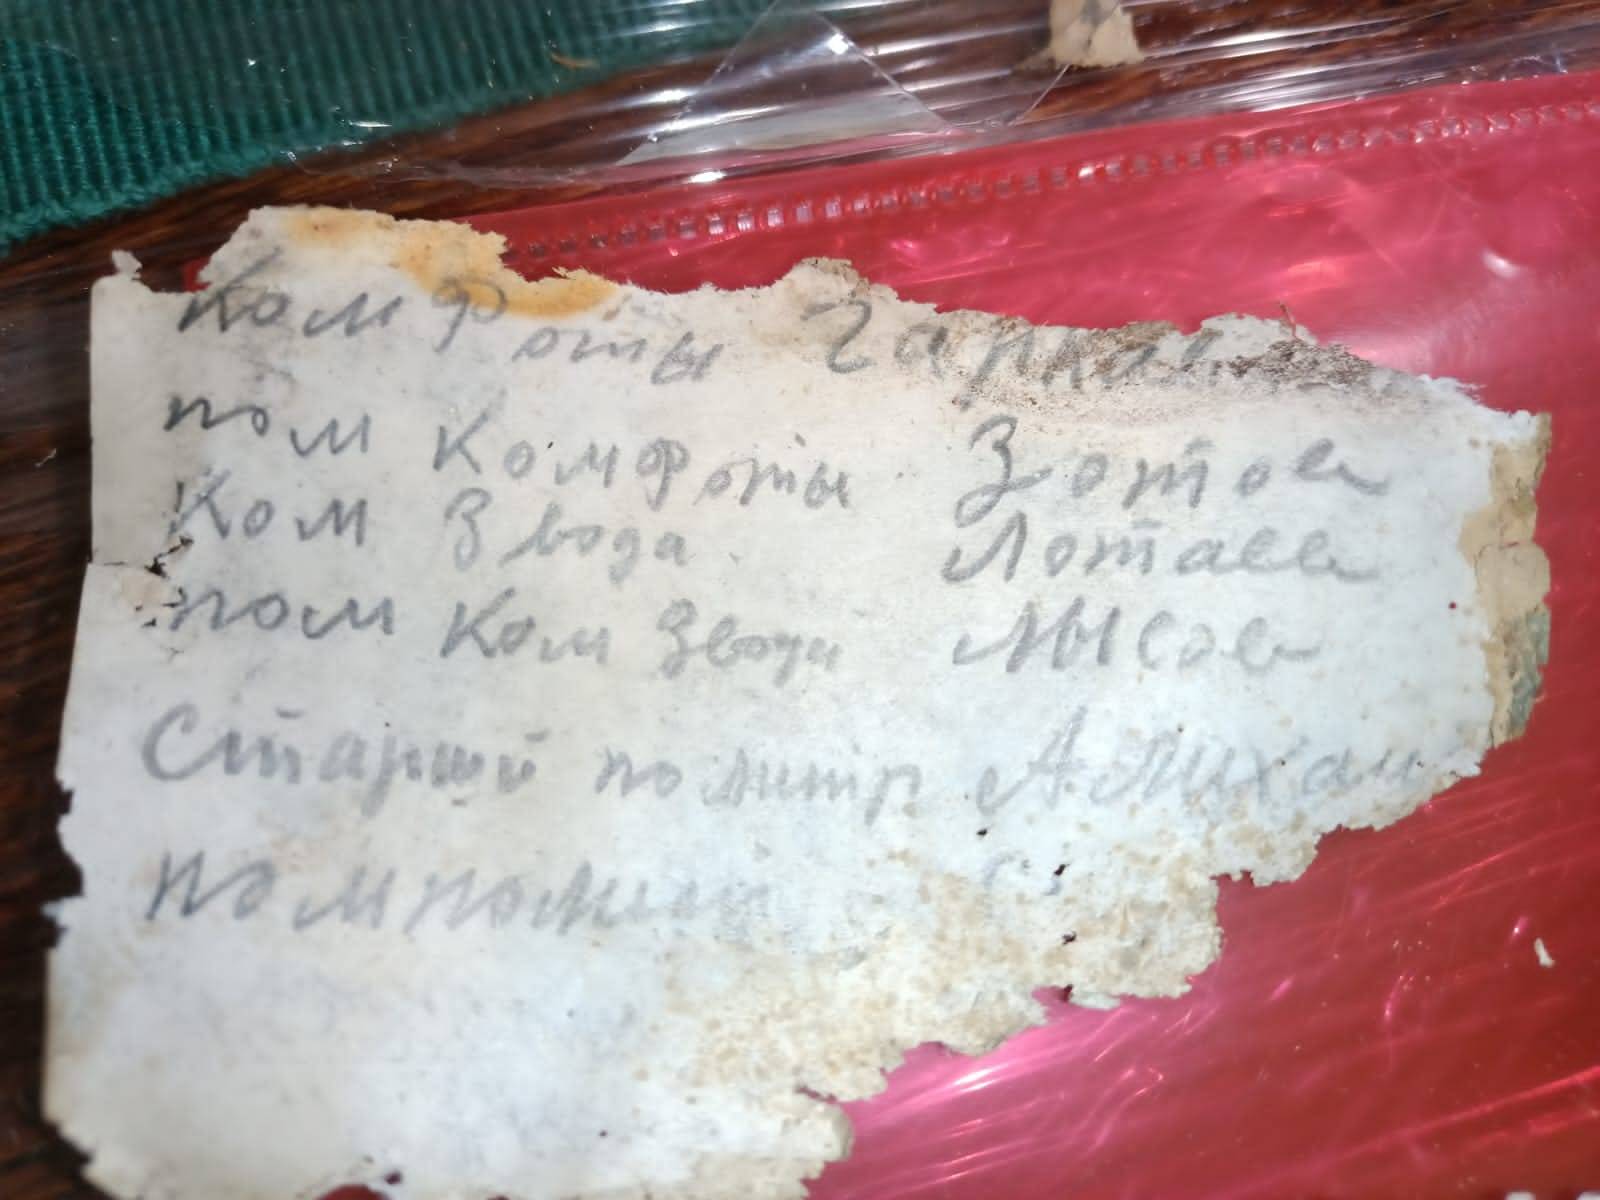 Ком Роты
пом Ком Роты Зотов
Ком Звода Лотаев
пом Ком Звода Мысов
Старший политр А. Михаи
пом полит